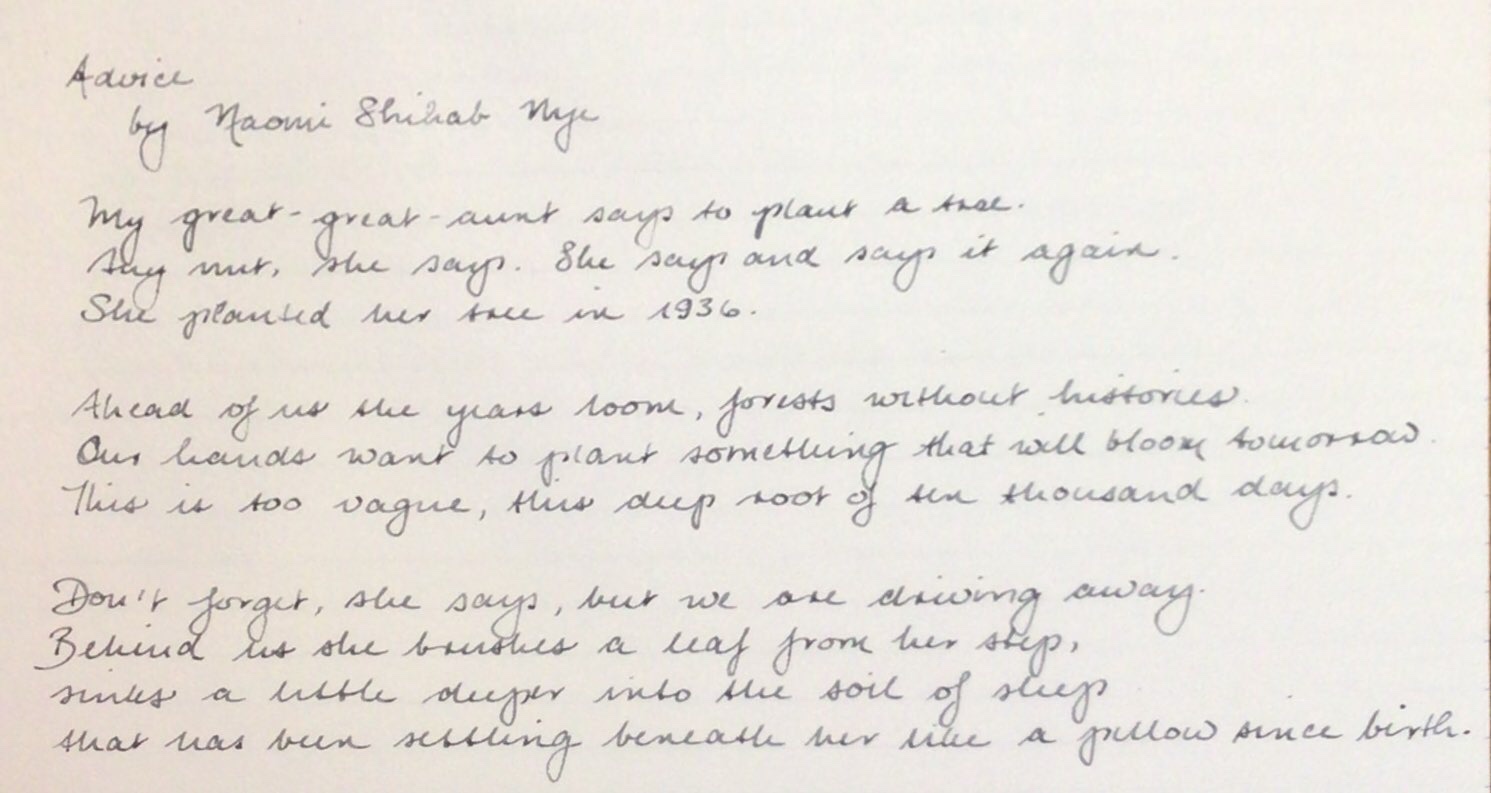 Advice
by Naomi Shihab Nye
My great-great-aunt says to plant a tree.
Any nut, she says. She says and says it again.
She planted her tree in 1936.
Ahead of us the years loom, forests without histories.
Our hands want to plant something that will bloom tomorrow.
This is too vague, this deep root of ten thousand days.
Don't forget, she says, but we are driving away.
Behind us she brushes a leaf from her step,
sinks a little deeper into the soil of sleep
that has been settling beneath her like a pillow since birth.